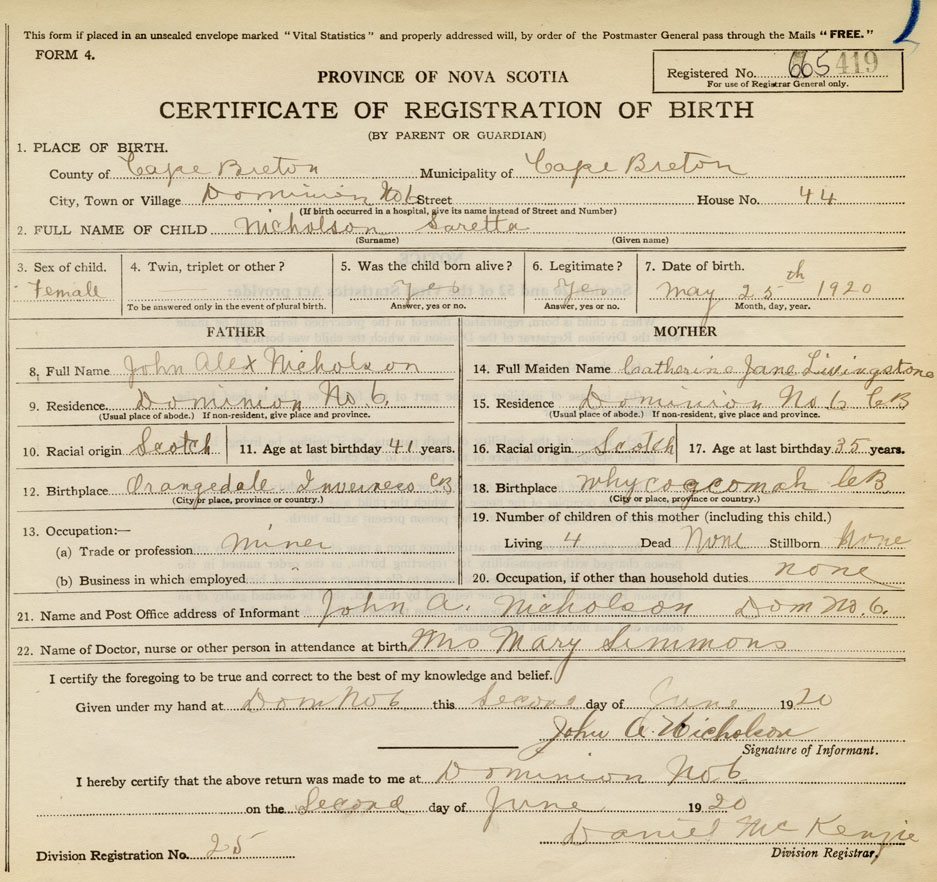 This form if placed in an unsealed envelope marked "Vital Statistics" and properly addressed will, by order of the Postmaster General pass through the Mails "FREE."
FORM 4.
Registered No. 665 419
For use of Registrar General only.
PROVINCE OF NOVA SCOTIA
CERTIFICATE OF REGISTRATION OF BIRTH
(BY PARENT OR GUARDIAN)
1. PLACE OF BIRTH.
County of Cape Breton Municipality of Cape Breton
City, Town or Village Dominion No 6 Street House No. 44
(If birth occurred in a hospital, give its name instead of Street and Number)
2. FULL NAME OF CHILD Nicholson Saretta
(Surname) (Given name)
3. Sex of child. 4. Twin, triplet or other? 5. Was the child born alive? 6. Legitimate? 7. Date of birth.
Female Yes Yes May 25th 1920
To be answered only in the event of plural birth. Answer, yes or no. Answer, yes or no. Month, day, year.
FATHER
8. Full Name John Alex Nicholson
9. Residence Dominion No 6.
(Usual place of abode.) If non-resident, give place and province.
10. Racial origin Scotch 11. Age at last birthday 41 years.
12. Birthplace Orangedale Inverness CB
(City or place, province or country.)
13. Occupation:—
(a) Trade or profession miner
(b) Business in which employed "
MOTHER
14. Full Maiden Name Catherine Jane Livingstone
15. Residence Dominion No 6 CB
(Usual place of abode.) If non-resident, give place and province.
16. Racial origin Scotch 17. Age at last birthday 35 years.
18. Birthplace Whycogcomah CB.
(City or place, province or country.)
19. Number of children of this mother (including this child.)
Living 4 Dead None Stillborn None
20. Occupation, if other than household duties. none
21. Name and Post Office address of Informant John A. Nicholson Dom No. 6.
22. Name of Doctor, nurse or other person in attendance at birth Mrs Mary Simmons
I certify the foregoing to be true and correct to the best of my knowledge and belief.
Given under my hand at Dom No 6 this Second day of June 1920
John A. Nicholson
Signature of Informant.
I hereby certify that the above return was made to me at Dominion No 6
on the Second day of June 1920
Daniel McKenzie
Division Registration No. 25 Division Registrar.